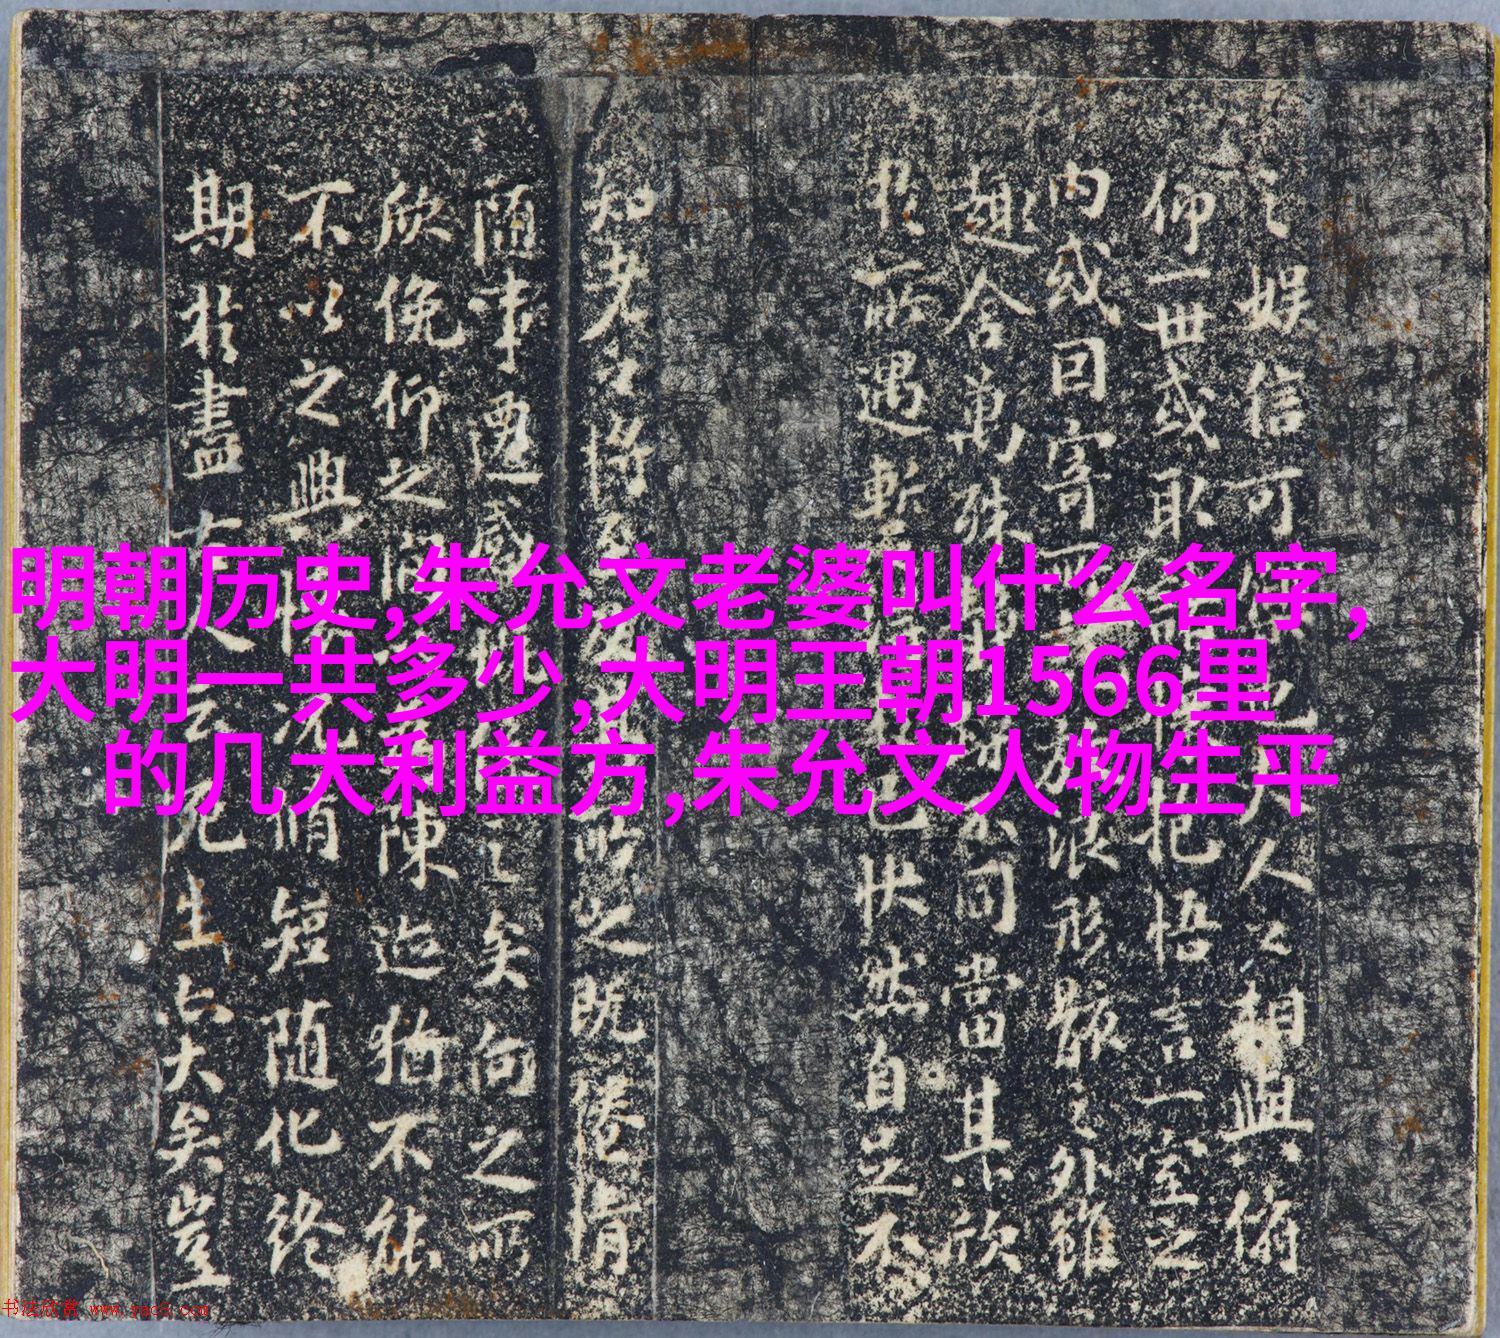 明朝历史,朱允文老婆叫什么名字,
大明一共多少,大明王朝1566里
的几大利益方,朱允文人物生平
之娱信可也夫人之相與俯
仰一世或取抱悟言一室之
內或因寄所放浪形骸之外雖
趣舍萬殊不同當其欣
於所遇暫己快然自足不
知老之將至所之既惓情
隨事遷感之矣向之所
欣俛仰之間陳迹猶不能
不以之興況脩短隨化終
期於盡古云死生亦大矣豈
书法欣赏 www.yac8.com